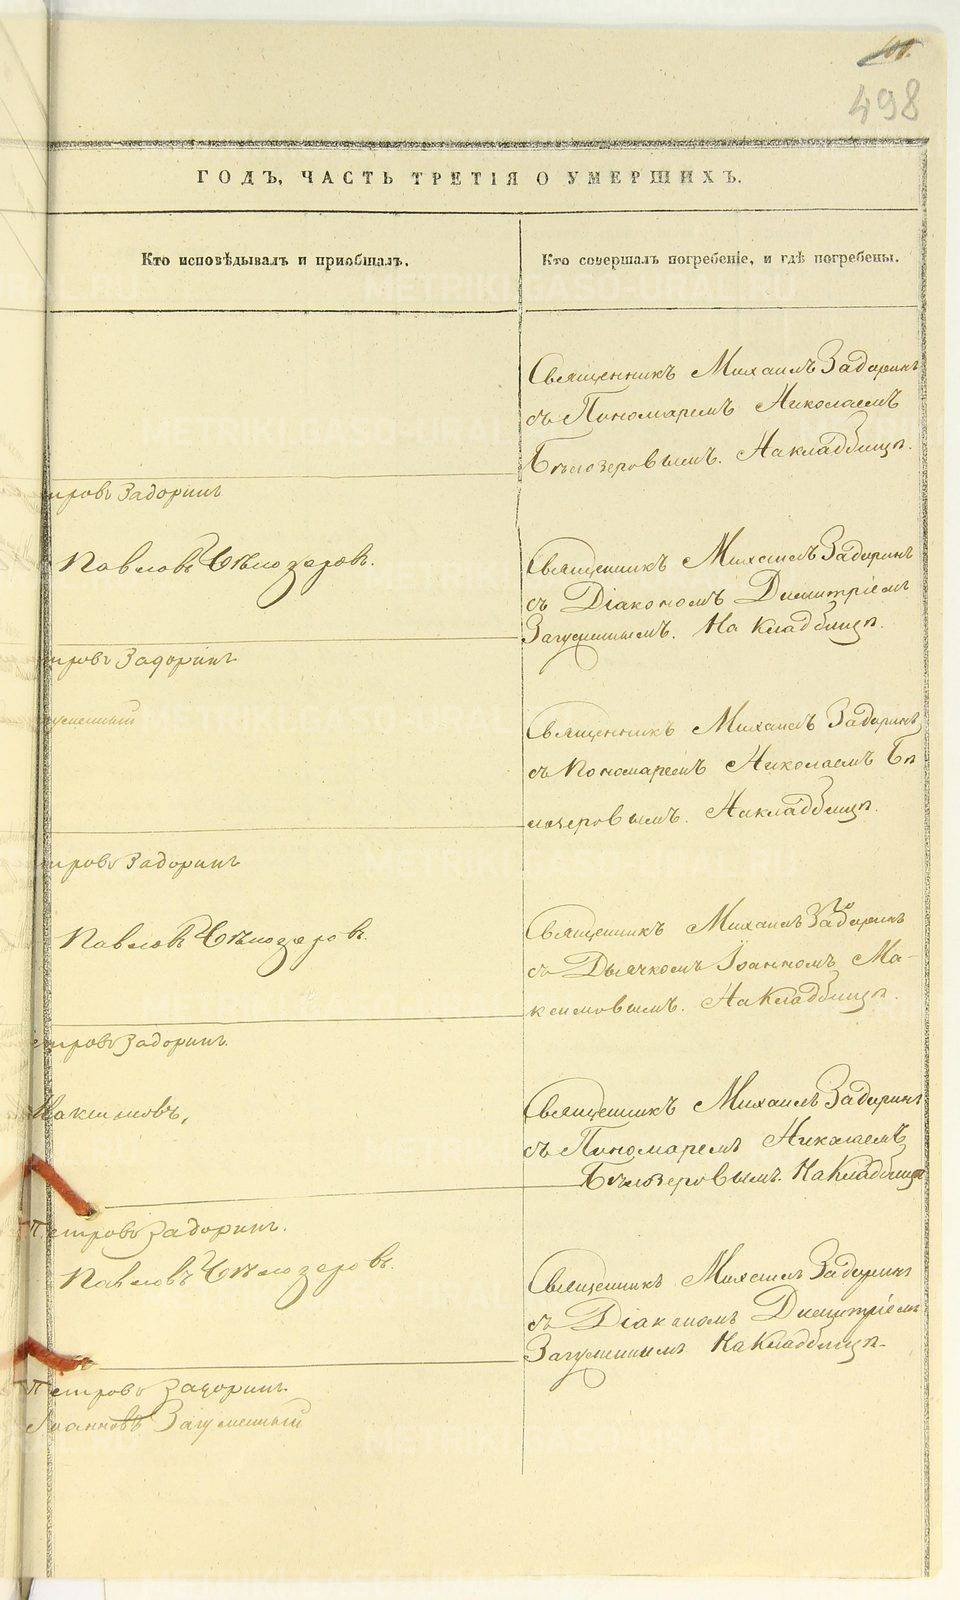 498
ГОДЪ, ЧАСТЬ ТРЕТІЯ О УМЕРШИХЪ.
Кто исповѣдывалъ и пріобщалъ.
Кто совершалъ погребеніе, и гдѣ погребены.
Священникъ Михаилъ Задоринъ
съ Пономаремъ Николаемъ
Бѣлозеровымъ. На кладбищѣ.
тровъ Задоринъ
Павловъ Бѣлозеровъ.
Священникъ Михаилъ Задоринъ
съ Діакономъ Димитріемъ
Загуменнымъ. На кладбищѣ.
тровъ Задоринъ
гуменный
Священникъ Михаилъ Задоринъ
съ Пономаремъ Николаемъ Бѣ
лозеровымъ. На кладбищѣ.
тровъ Задоринъ
Павловъ Бѣлозеровъ.
Священникъ Михаилъ Задоринъ
съ Дьячкомъ Іоанномъ Ма-
ксимовымъ. На кладбищѣ.
етровъ Задоринъ.
Максимовъ,
Священникъ Михаилъ Задоринъ
съ Пономаремъ Николаемъ
Бѣлозеровымъ. На кладбищѣ
Петровъ Задоринъ.
Павловъ Бѣлозеровъ.
Священникъ Михаилъ Задоринъ
съ Діакономъ Димитріемъ
Загуменнымъ На кладбищѣ.
Петровъ Задоринъ.
Іоанновъ Загуменный
METRIKI.GASO-URAL.RU